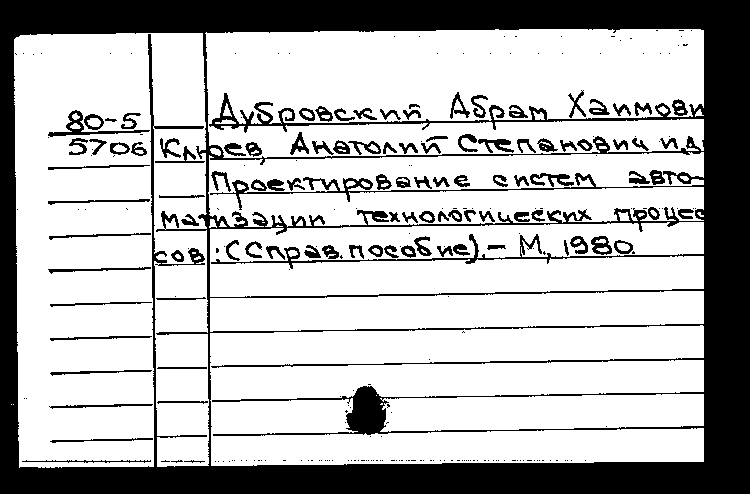 80-5 Дубровский, Абрам Хаимови
5706 Клюев, Анатолий Степанович и д
Проектирование систем авто-
матизации технологических процес
сов: (Справ. пособие). - М, 1980.